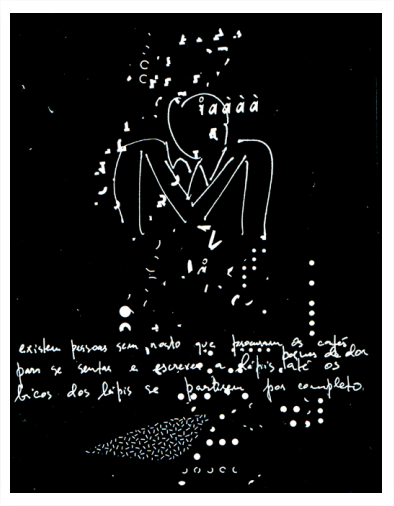 existem pessoas sem rosto que procuram os cafés
para se sentar e escrever a lápis até os
bicos dos lápis se partirem por completo.